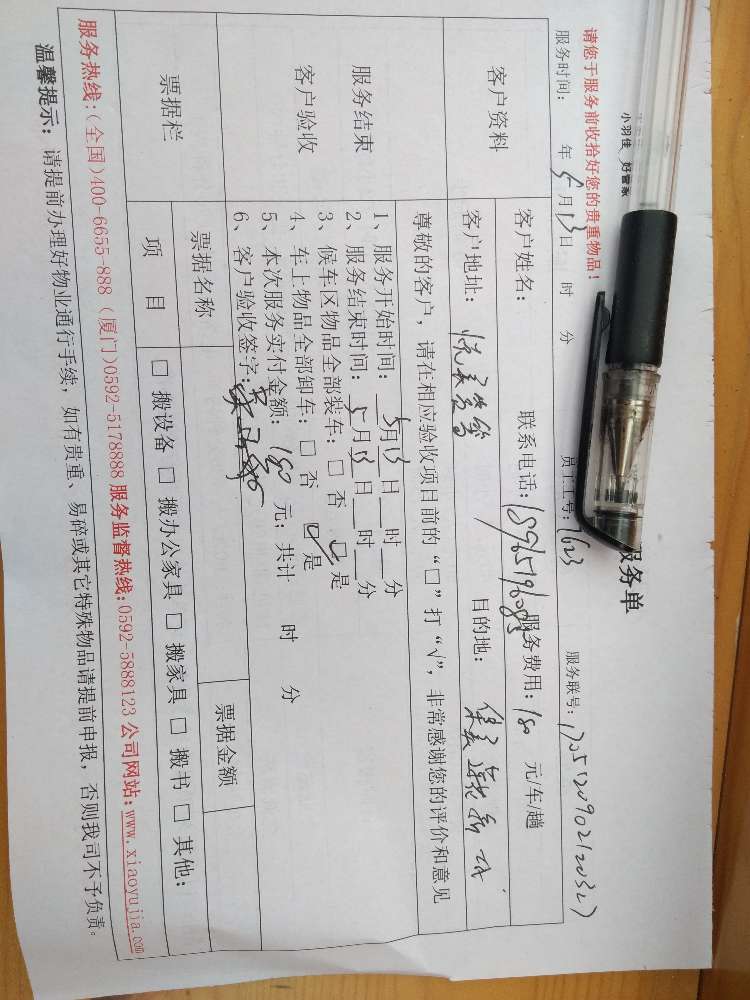 小羽佳 好管家
服务单
请您于服务前收拾好您的贵重物品！
服务联号：
服务时间： 年 5 月 13 日 时 分 员工工号：1623
客户资料
客户姓名： 联系电话： 服务费用：180 元/车/趟
客户地址： 目的地：
服务结束
客户验收
尊敬的客户，请在相应验收项目前的“□”打“√”，非常感谢您的评价和意见
1、服务开始时间：5月13日__时__分
2、服务结束时间：5月13日__时__分
3、候车区物品全部装车：□ 否 ☑ 是
4、车上物品全部卸车：□ 否 ☑ 是
5、本次服务实付金额：180 元；共计 时 分
6、客户验收签字：
票据栏
票据名称 票据金额
项 目 □ 搬设备 □ 搬办公家具 □ 搬家具 □ 搬书 □ 其他：
服务热线：(全国)400-6655-888 (厦门)0592-5178888 服务监督热线：0592-5888123 公司网站：www.xiaoyujia.com
温馨提示：请提前办理好物业通行手续，如有贵重、易碎或其它特殊物品请提前申报，否则我司不予负责。